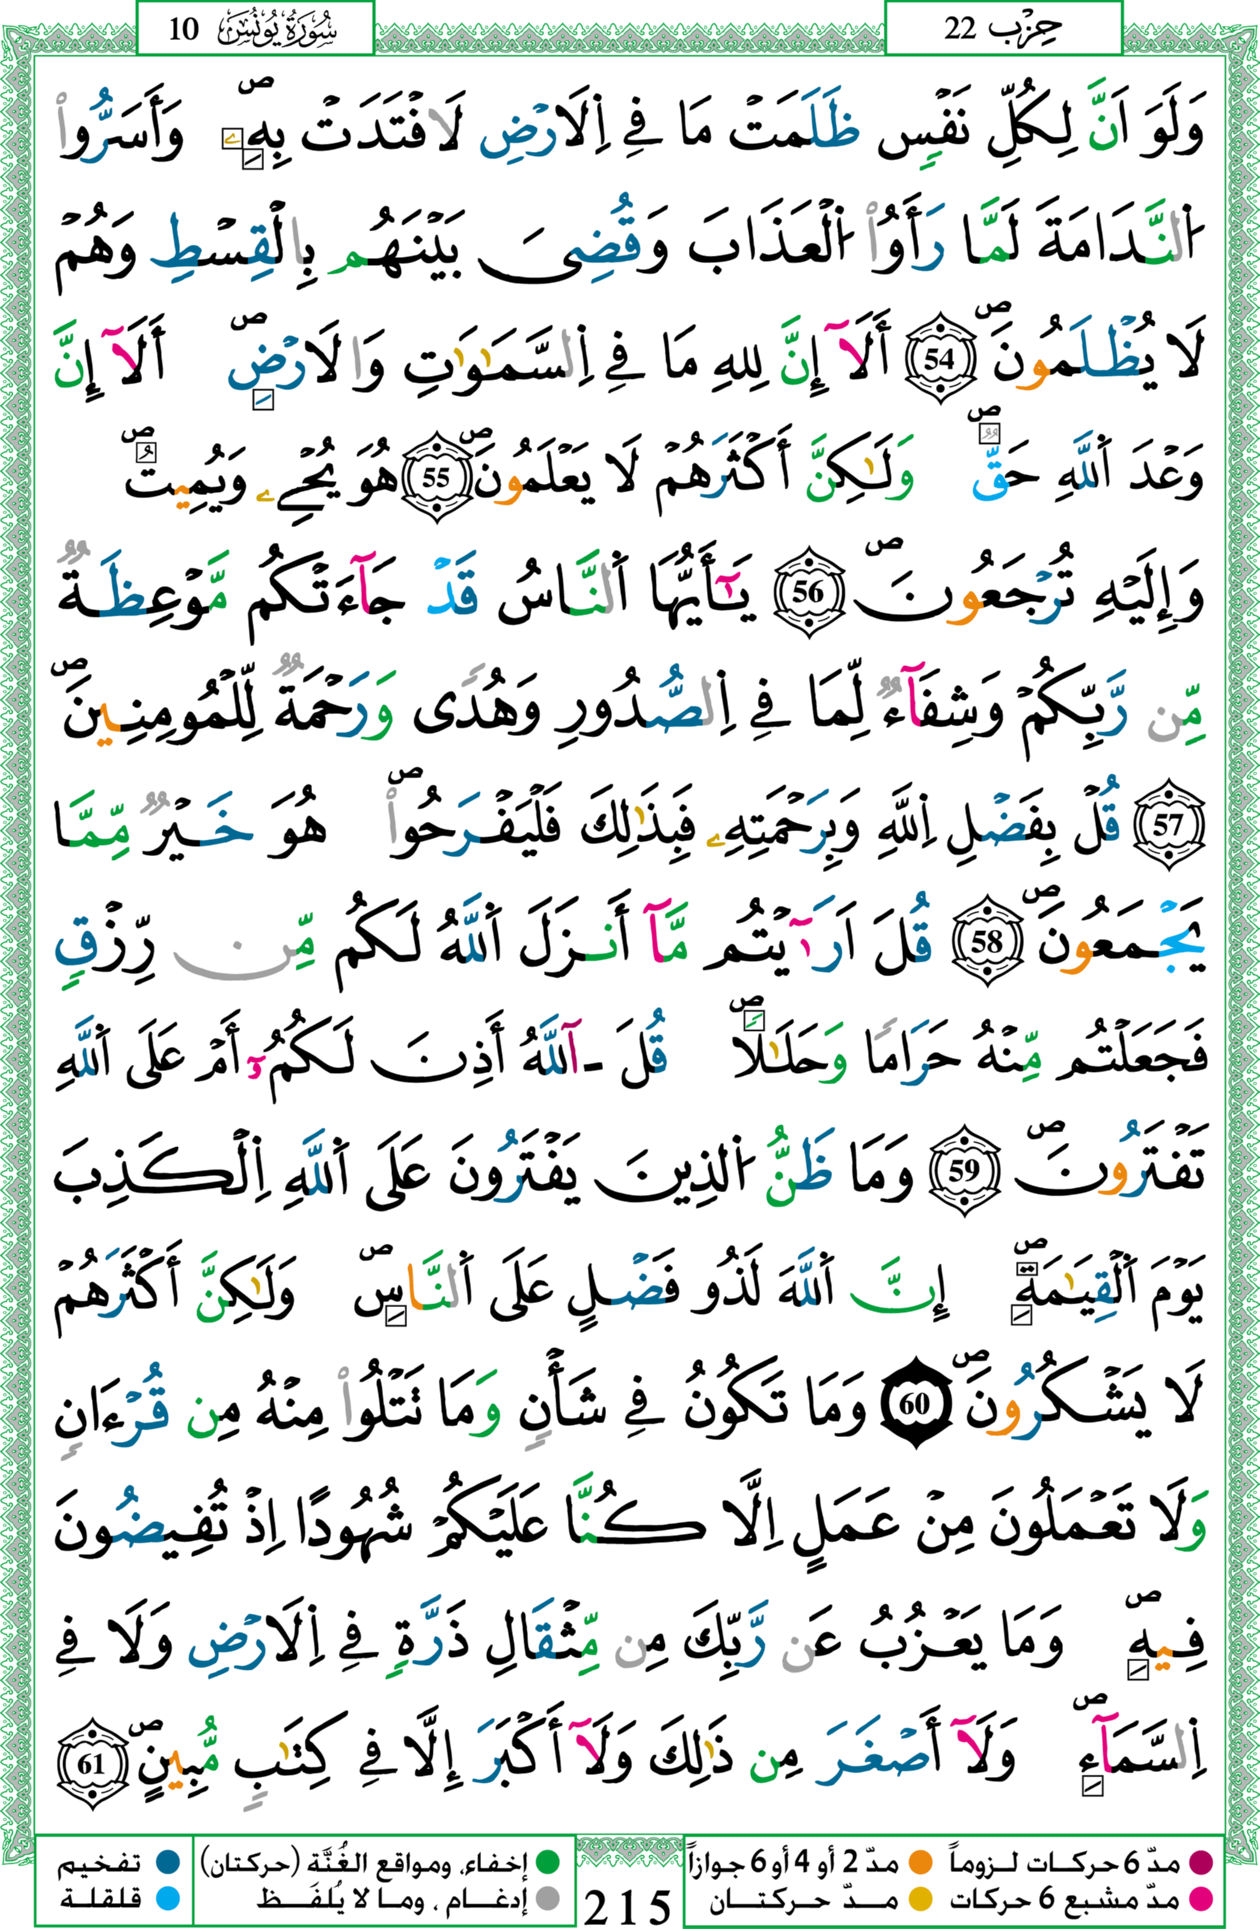 حِزْب 22
سُورَةُ يُونُسَ 10
وَلَوَ اَنَّ لِكُلِّ نَفْسٖ ظَلَمَتْ مَا فِے اِ۬لَارْضِ لَافْتَدَتْ بِهِۦۖ وَأَسَرُّواْ
اُ۬لنَّدَامَةَ لَمَّا رَأَوُاْ اُ۬لْعَذَابَ وَقُضِىَ بَيْنَهُم بِالْقِسْطِ وَهُمْ
لَا يُظْلَمُونَۖ 54 أَلَآ إِنَّ لِلهِ مَا فِے اِ۬لسَّمَٰوَٰتِ وَالَارْضِۖ أَلَآ إِنَّ
وَعْدَ اَ۬للَّهِ حَقّٞۖ وَلَٰكِنَّ أَكْثَرَهُمْ لَا يَعْلَمُونَۖ 55 هُوَ يُحْيِۦ وَيُمِيتُۖ
وَإِلَيْهِ تُرْجَعُونَۖ 56 يَٰٓأَيُّهَا اَ۬لنَّاسُ قَدْ جَآءَتْكُم مَّوْعِظَةٞ
مِّن رَّبِّكُمْ وَشِفَآءٞ لِّمَا فِے اِ۬لصُّدُورِ وَهُدٗى وَرَحْمَةٞ لِّلْمُومِنِينَۖ
57 قُلْ بِفَضْلِ اِ۬للَّهِ وَبِرَحْمَتِهِۦ فَبِذَٰلِكَ فَلْيَفْرَحُواْۖ هُوَ خَيْرٞ مِّمَّا
يَجْمَعُونَۖ 58 قُلَ اَرَٰٓيْتُم مَّآ أَنزَلَ اَ۬للَّهُ لَكُم مِّن رِّزْقٖ
فَجَعَلْتُم مِّنْهُ حَرَامٗا وَحَلَٰلٗاۖ قُلَ ـ آللَّهُ أَذِنَ لَكُمُۥٓ أَمْ عَلَى اَ۬للَّهِ
تَفْتَرُونَۖ 59 وَمَا ظَنُّ اُ۬لذِينَ يَفْتَرُونَ عَلَى اَ۬للَّهِ اِ۬لْكَذِبَ
يَوْمَ اَ۬لْقِيَٰمَةِۖ إِنَّ اَ۬للَّهَ لَذُو فَضْلٍ عَلَى اَ۬لنَّاسِۖ وَلَٰكِنَّ أَكْثَرَهُمْ
لَا يَشْكُرُونَۖ 60 وَمَا تَكُونُ فِے شَأْنٖ وَمَا تَتْلُواْ مِنْهُ مِن قُرْءَانٖ
وَلَا تَعْمَلُونَ مِنْ عَمَلٍ اِلَّا كُنَّا عَلَيْكُمْ شُهُودًا اِذْ تُفِيضُونَ
فِيهِۖ وَمَا يَعْزُبُ عَن رَّبِّكَ مِن مِّثْقَالِ ذَرَّةٖ فِے اِ۬لَارْضِ وَلَا فِے
اِ۬لسَّمَآءِۖ وَلَآ أَصْغَرَ مِن ذَٰلِكَ وَلَآ أَكْبَرَ إِلَّا فِے كِتَٰبٖ مُّبِينٍۖ 61
مدّ 6 حركات لـزوماً مدّ 2 أو 4 أو 6 جوازاً
مدّ مشبع 6 حركات مـدّ حـركتـان
215
إخفاء، ومواقع الغُنَّة (حركتان) تفخيم
إدغـام ، ومـا لا يُلفَـظ قلقلة